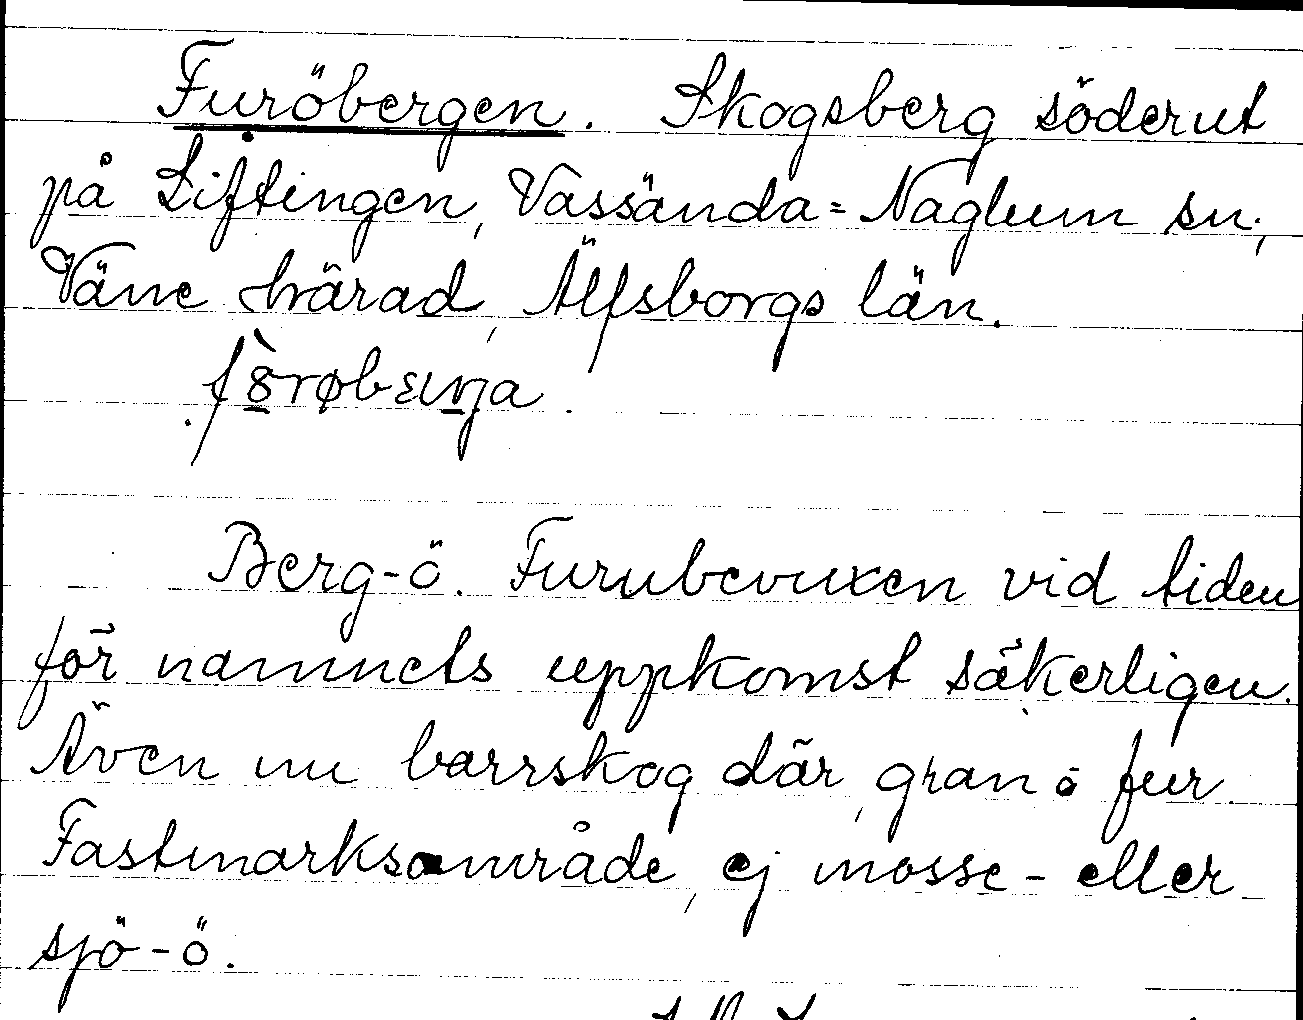 Furöbergen. Skogsberg söderut
på Liftingen, Vassända-Naglum sn,
Väne härad, Älfsborgs län.
Berg-ö. Furubevuxen vid tiden
för namnets uppkomst säkerligen.
Även nu barrskog där, gran o fur.
Fastmarksområde, ej mosse- eller
sjö-ö.